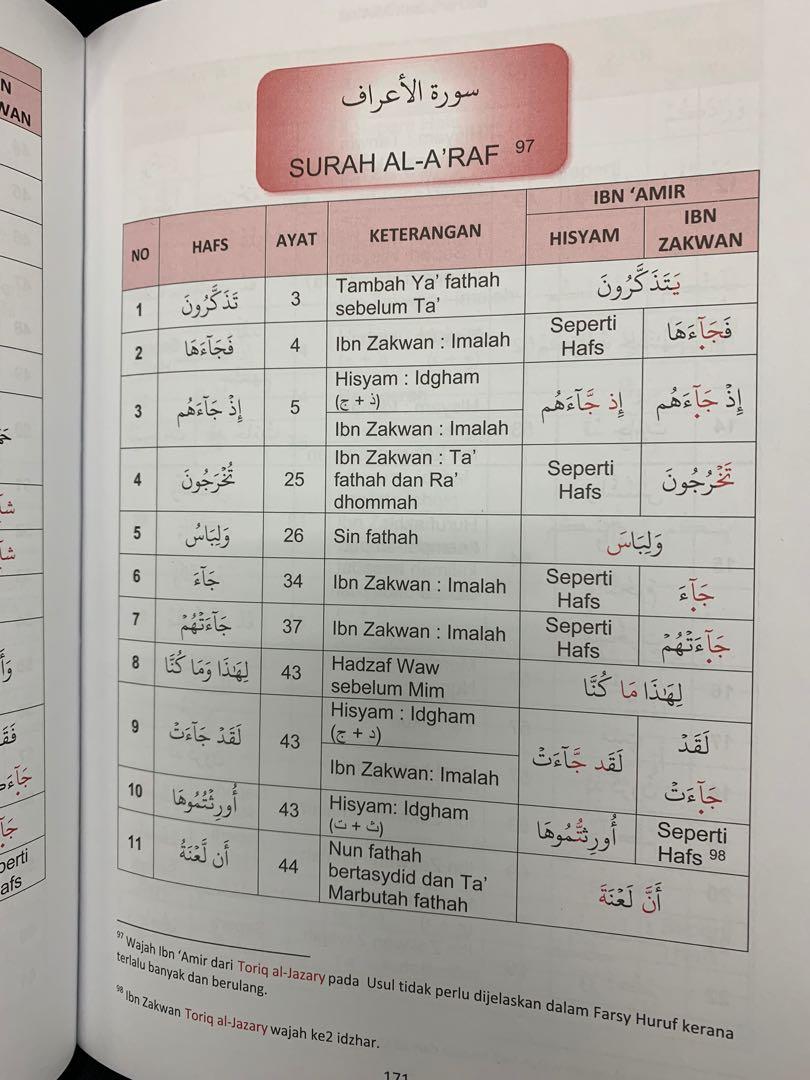 سورة الأعراف
SURAH AL-A'RAF 97
NO HAFS AYAT KETERANGAN IBN 'AMIR
HISYAM IBN ZAKWAN
1 تَذَكَّرُونَ 3 Tambah Ya' fathah sebelum Ta' يَتَذَكَّرُونَ
2 فَجَآءَهَا 4 Ibn Zakwan : Imalah Seperti Hafs فَجَآءَهَا
3 إِذۡ جَآءَهُم 5 Hisyam : Idgham (ذ + ج) إِذ جَّآءَهُم إِذۡ جَآءَهُم
Ibn Zakwan : Imalah
4 تُخۡرَجُونَ 25 Ibn Zakwan : Ta' fathah dan Ra' dhommah Seperti Hafs تَخۡرُجُونَ
5 وَلِبَاسُ 26 Sin fathah وَلِبَاسَ
6 جَآءَ 34 Ibn Zakwan : Imalah Seperti Hafs جَآءَ
7 جَآءَتۡهُمۡ 37 Ibn Zakwan : Imalah Seperti Hafs جَآءَتۡهُمۡ
8 لِهَٰذَا وَمَا كُنَّا 43 Hadzaf Waw sebelum Mim لِهَٰذَا مَا كُنَّا
9 لَقَدۡ جَآءَتۡ 43 Hisyam : Idgham (د + ج) لَقَد جَّآءَتۡ لَقَدۡ جَآءَتۡ
Ibn Zakwan: Imalah
10 أُورِثۡتُمُوهَا 43 Hisyam: Idgham (ث + ت) أُورِثتُّمُوهَا Seperti Hafs 98
11 أَن لَّعۡنَةُ 44 Nun fathah bertasydid dan Ta' Marbutah fathah أَنَّ لَعۡنَةَ
97 Wajah Ibn 'Amir dari Toriq al-Jazary pada Usul tidak perlu dijelaskan dalam Farsy Huruf kerana
terlalu banyak dan berulang.
98 Ibn Zakwan Toriq al-Jazary wajah ke2 idzhar.
171